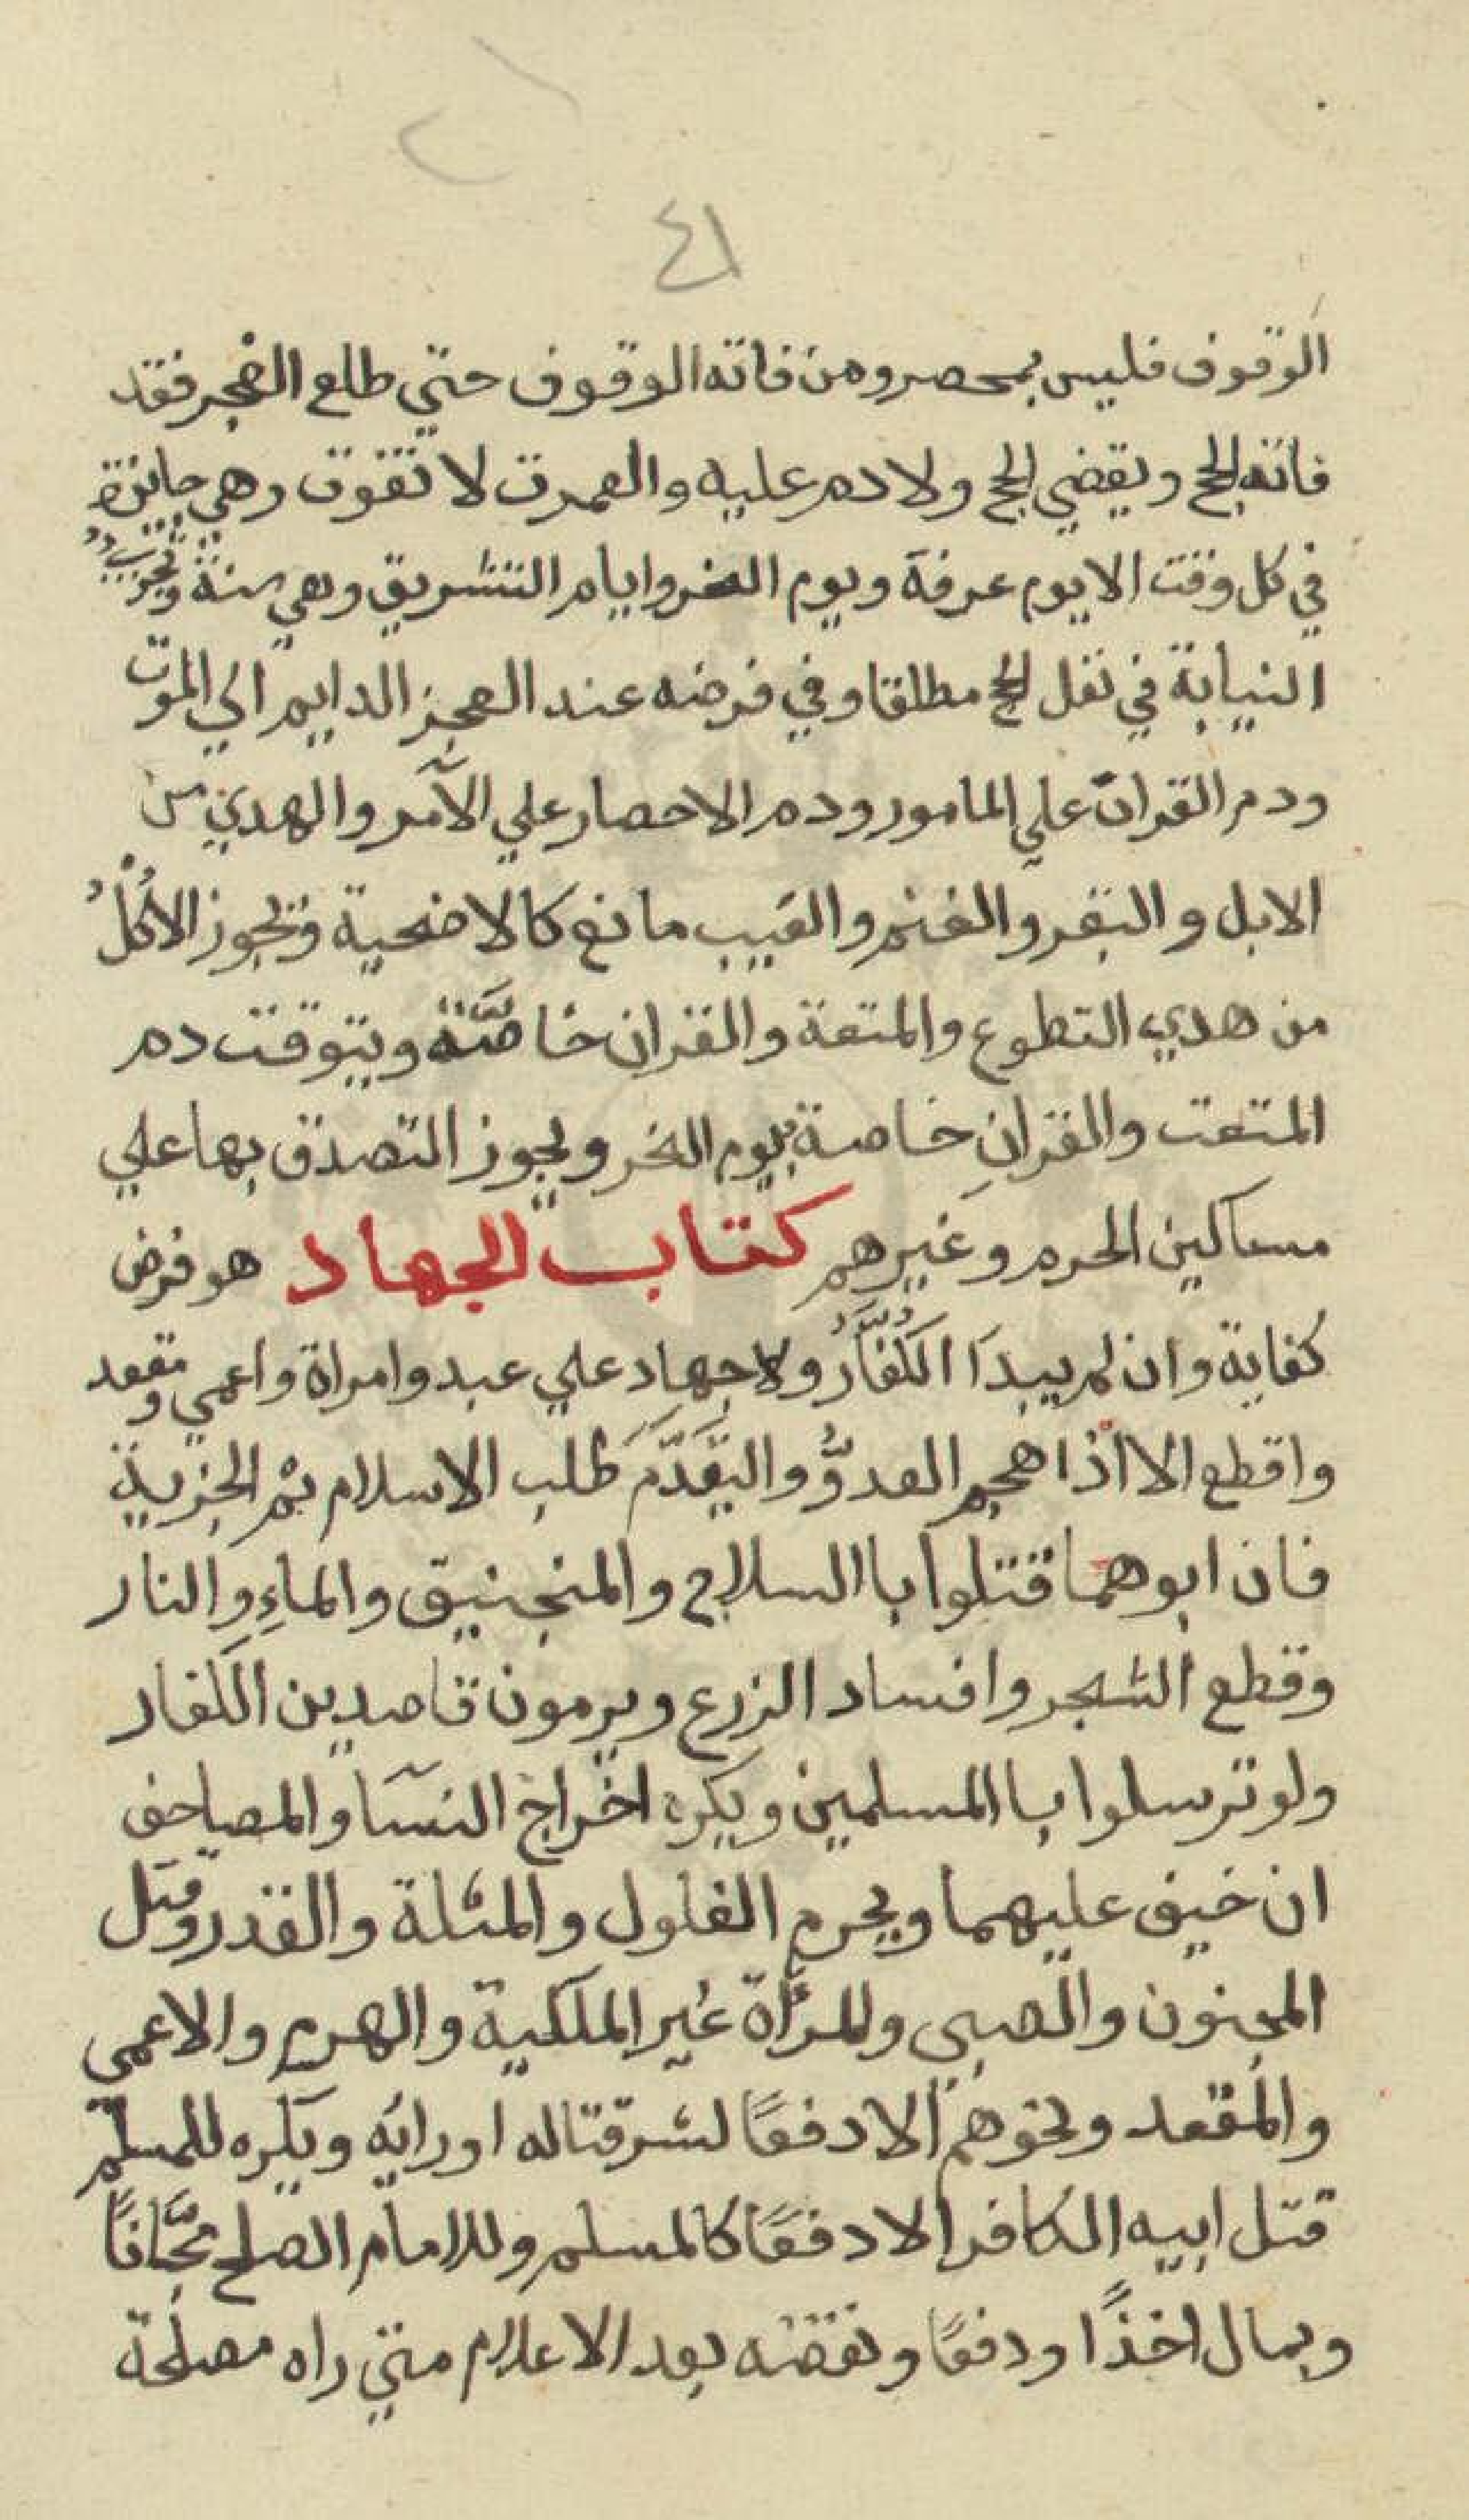 ٤١
الوقوف فليس بمحصر ومن فاته الوقوف حتي طلع الفجر فقد
فاته الحج ويقضي الحج ولا دم عليه والعمرت لا تفوت وهي جايزة
في كل وقت الا يوم عرفة ويوم النحر وايام التشريق وهي سنة وتجوز
النيابة في نفل الحج مطلقا وفي فرضه عند العجز الدايم الي الموت
ودم القران علي المامور ودم الاحصار علي الآمر والهدي من
الابل والبقر والغنم والعيب مانع كالاضحية ويجوز الاكلُ
من هدي التطوع والمتعة والقران خاصَّة ويتوقت دم
المتعت والقرانِ خاصة بيوم النحر ويجوز التصدق بها علي
مساكين الحرم وغيرهم كتاب الجهاد هو فرض
كفاية وان لم يبدَا الكُفَّارُ ولا جهاد علي عبد وامراة واعمي ومقعد
واقطع الا اذا هجم العدوُّ واليَقَدَّم طلب الاسلام ثم الجزية
فان ابوهما قتلوا با السلاح والمنجنيق والماءِ والنار
وقطع الشجر وافساد الزرع ويرمون قاصدين الكفار
ولو ترسلوا با المسلمين ويكره اخراج النسا والمصاحف
ان خيف عليهما ويحرم الغلول والمثلة والغدر وقتل
المجنون والصبي وللمرأة غير الملكية والهرم والاعمي
والمقعد ونحوهم الا دفعًا لشر قتاله او رايه ويكره للمسلم
قتل ابيه الكافر الا دفعًا كالمسلم وللامام الصلح مجَّانًا
وبمال اخذًا ودفعًا ونقضه بعد الاعلام متي راه مصلحة